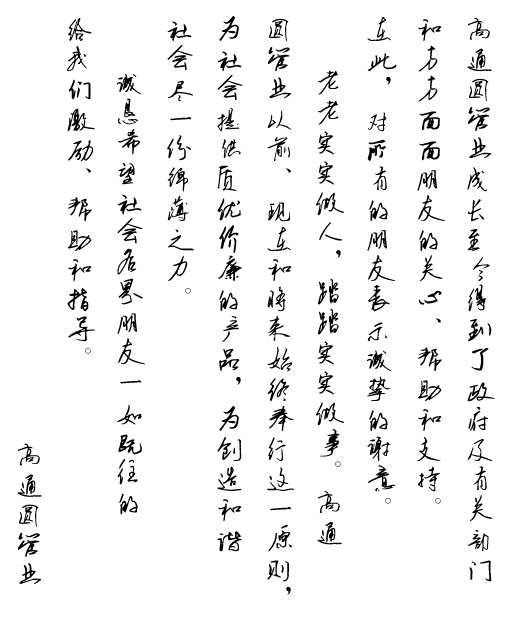 高通圆管业成长至今得到了政府及有关部门
和方方面面朋友的关心、帮助和支持。
在此，对所有的朋友表示诚挚的谢意。
老老实实做人，踏踏实实做事。高通
圆管业以前、现在和将来始终奉行这一原则，
为社会提供质优价廉的产品，为创造和谐
社会尽一份绵薄之力。
诚恳希望社会各界朋友一如既往的
给我们激励、帮助和指导。
高通圆管业